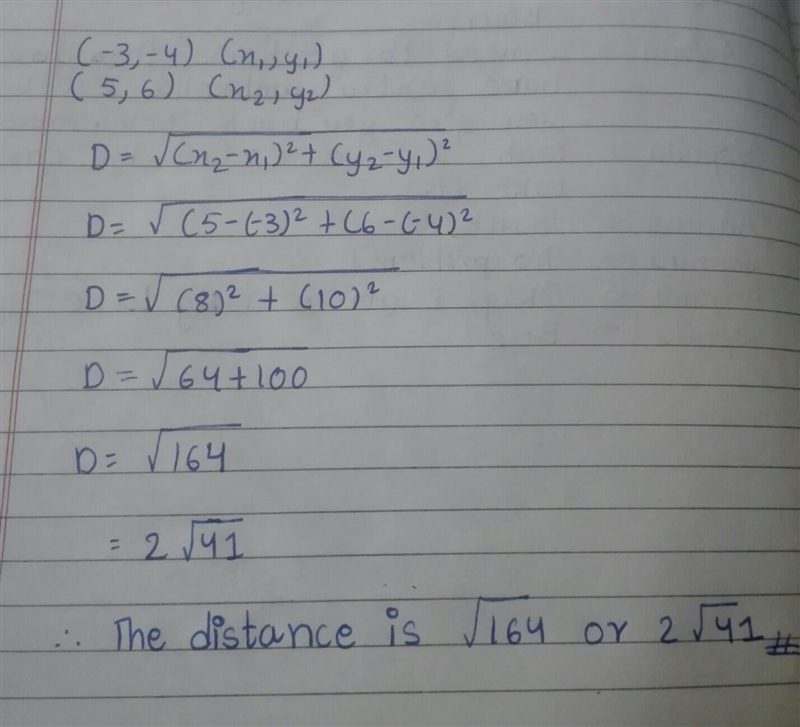 (-3,-4) (x₁,y₁)
(5,6) (x₂,y₂)
D = √(x₂-x₁)²+(y₂-y₁)²
D= √(5-(-3)²+(6-(-4)²
D = √(8)² + (10)²
D = √64+100
D= √164
= 2√41
∴ The distance is √164 or 2√41